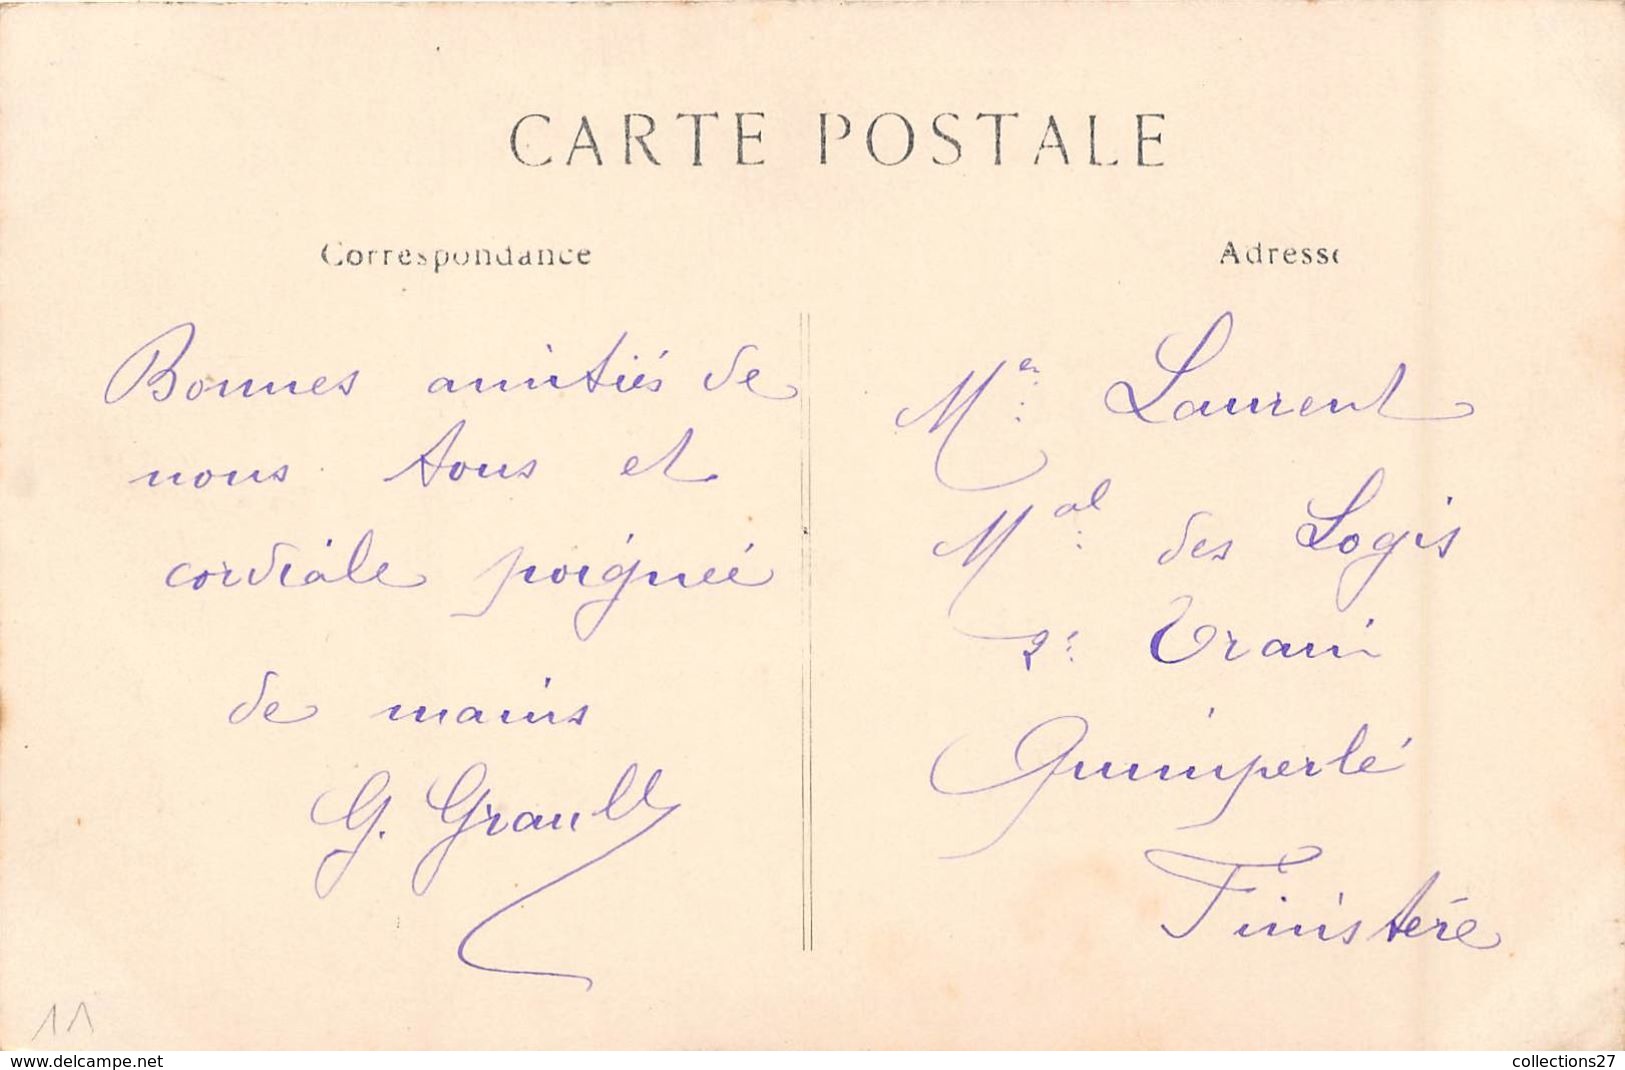 CARTE POSTALE
Correspondance
Bonnes amitiés de
nous tous et
cordiale poignée
de mains
G. Grault
Adresse
Mr Laurent
Mal des Logis
2e Train
Quimperlé
Finistère
11
www.delcampe.net
collections27